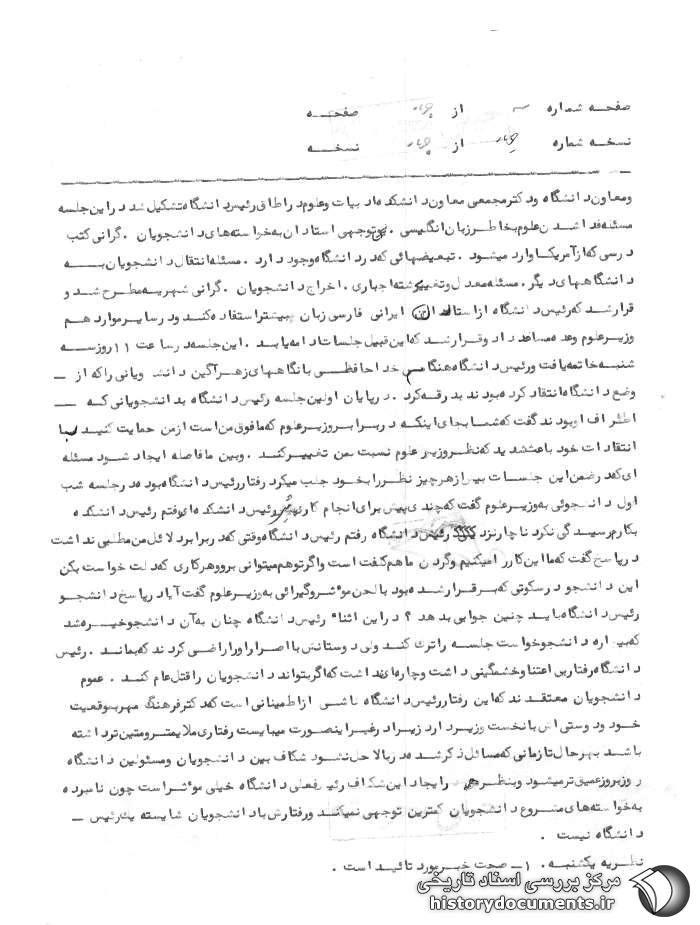 صفحه شماره سه از چهار صفحه
نسخه شماره چهار از چهار نسخه
ومعاون دانشگاه ودکتر مجمعی معاون دانشکده ادبیات وعلوم در اطاق رئیس دانشگاه تشکیل شد در این جلسه
مسئله فدا شدن علوم بخاطر زبان انگلیسی . بی توجهی استادان به خواسته های دانشجویان . گرانی کتب
درسی که از آمریکا وارد میشود . تبعیضهائی که در دانشگاه وجود دارد . مسئله انتقال دانشجویان بـــه
دانشگاههای دیگر . مسئله معدل وتغییر رشته اجباری . اخراج دانشجویان . گرانی شهریه مطرح شد و
قرار شد که رئیس دانشگاه از استادان ایرانی فارسی زبان بیشتر استفاده کند ودر سایر موارد هم
وزیر علوم وعده مساعد داد وقرار شد که این قبیل جلسات ادامه یابد . این جلسه در ساعت ۱۱ روز ســه
شنبه خاتمه یافت ورئیس دانشگاه هنگام خداحافظی با نگاههای زهرآگین دانشجویانی را که از ـ
وضع دانشگاه انتقاد کرده بودند بدرقه کرد . در پایان اولین جلسه رئیس دانشگاه به دانشجویانی که ــ
اطراف او بودند گفت که شما بجای اینکه در برابر وزیر علوم که مافوق من است از من حمایت کنید با
انتقادات خود باعث شدید که نظر وزیر علوم نسبت بمن تغییر کند . وبین ما فاصله ایجاد شود مسئله
ای که در ضمن این جلسات بیش از هر چیز نظر را بخود جلب میکرد رفتار رئیس دانشگاه بود در جلسه شب
اول دانشجوئی به وزیر علوم گفت که چندی پیش برای انجام کاری نزد رئیس دانشکده ای رفتم رئیس دانشکده
بکارم رسیدگی نکرد ناچار نزد رئیس دانشگاه رفتم رئیس دانشگاه وقتی که در برابر دلائل من مطلبی نداشت
در پاسخ گفت که ما این کار را میکنیم وگردن ما هم کلفت است واگر تو هم میتوانی برو وهر کاری که دلت خواست بکن
این دانشجو در سکوتی که برقرار شده بود با لحن موثر وگیرائی به وزیر علوم گفت آیا در پاسخ دانشجو
رئیس دانشگاه باید چنین جوابی بدهد ؟ در این اثنا رئیس دانشگاه چنان به آن دانشجو خیره شد
که بیچاره دانشجو خواست جلسه را ترک کند ولی دوستانش با اصرار او را راضی کردند که بماند . رئیس
دانشگاه رفتار بی اعتنا وخشمگینی داشت وچاره ای نداشت که اگر بتواند دانشجویان را قتل عام کند . عموم
دانشجویان معتقدند که این رفتار رئیس دانشگاه ناشی از اطمینانی است که دکتر فرهنگ مهر بموقعیت
خود ودوستی اش با نخست وزیر دارد زیرا در غیر اینصورت میبایست رفتاری ملایمتر ومتین تر داشته
باشد بهر حال تا زمانی که مسائل ذکر شده در بالا حل نشود شکاف بین دانشجویان ومسئولین دانشگاه
روز بروز عمیق تر میشود وبنظر میرسد در ایجاد این شکاف رئیس فعلی دانشگاه خیلی موثر است چون نامبرده
به خواسته های مشروع دانشجویان کمترین توجهی نمیکند ورفتارش با دانشجویان شایسته یک رئیس ـ
دانشگاه نیست .
نظریه یکشنبه . ۱ـ صحت خبر مورد تائید است .
مرکز بررسی اسناد تاریخی
historydocuments.ir